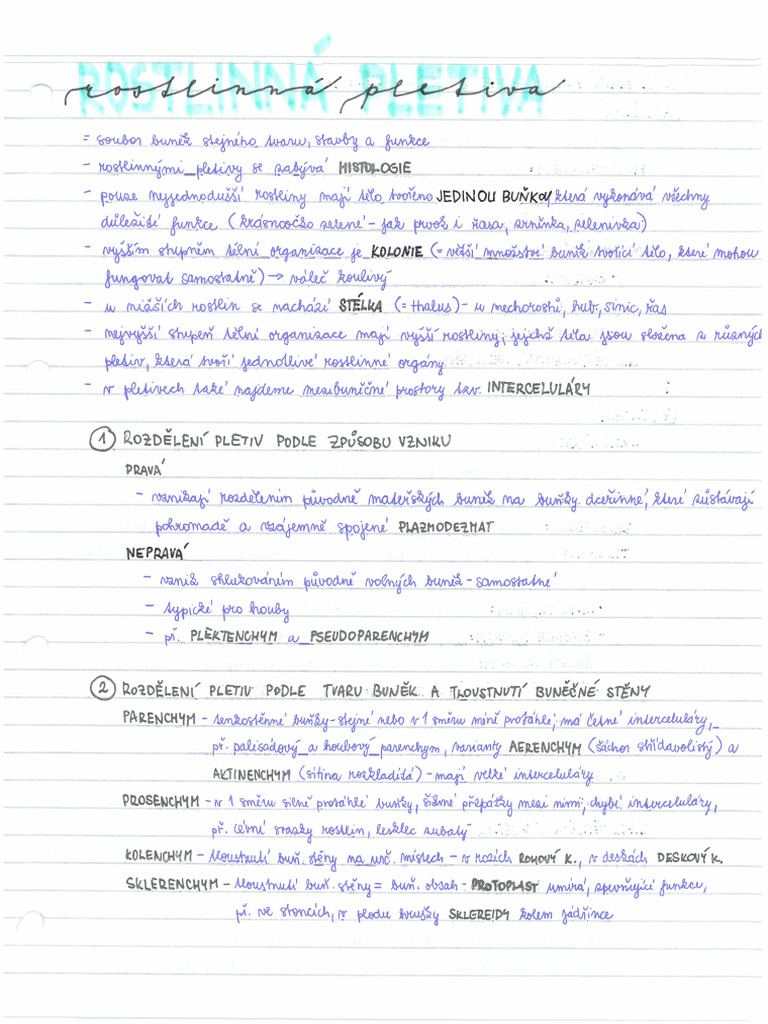 ROSTLINNÁ PLETIVA
rostlinná pletiva
= soubor buněk stejného tvaru, stavby a funkce
- rostlinnými pletivy se zabývá HISTOLOGIE
- pouze nejjednodušší rostliny mají tělo tvořeno JEDINOU BUŇKOU, která vykonává všechny
důležité funkce (krásnoočko zelené - jak prvok i řasa, zrněnka, zelenivka)
- vyšším stupněm tělní organizace je KOLONIE (= větší množství buněk tvořící tělo, které mohou
fungovat samostatně) → váleč koulivý
- u nižších rostlin se nachází STÉLKA (= thalus) - u mechorostů, hub, sinic, řas
- nejvyšší stupeň tělní organizace mají vyšší rostliny, jejichž těla jsou složena z různých
pletiv, která tvoří jednotlivé rostlinné orgány
- v pletivech také najdeme mezibuněčné prostory tzv. INTERCELULÁRY
1 ROZDĚLENÍ PLETIV PODLE ZPŮSOBU VZNIKU
PRAVÁ
- vznikají rozdělením původně mateřských buněk na buňky dceřinné, které zůstávají
pohromadě a vzájemně spojené PLAZMODEZMAT
NEPRAVÁ
- vznik shlukováním původně volných buněk - samostatné
- typické pro houby
- př. PLEKTENCHYM a PSEUDOPARENCHYM
2 ROZDĚLENÍ PLETIV PODLE TVARU BUNĚK A TLOUSTNUTÍ BUNĚČNÉ STĚNY
PARENCHYM - tenkostěnné buňky - stejné nebo v 1 směru mírně protáhlé; má četné interceluláry,
př. palisádový a houbový parenchym, varianty AERENCHYM (šáchor střídavolistý) a
AKTINENCHYM (sítina rozkladitá) - mají velké interceluláry
PROSENCHYM - v 1 směru silně protáhlé buňky, šikmé přepážky mezi nimi, chybí interceluláry,
př. cévní svazky rostlin, lesklec zubatý
KOLENCHYM - tloustnutí buň. stěny na urč. místech - v rozích ROHOVÝ K., v deskách DESKOVÝ K.
SKLERENCHYM - tloustnutí buň. stěny = buň. obsah - PROTOPLAST umírá, zpevňující funkce,
př. ve stoncích, v plodu hrušky SKLEREIDY kolem jádřince